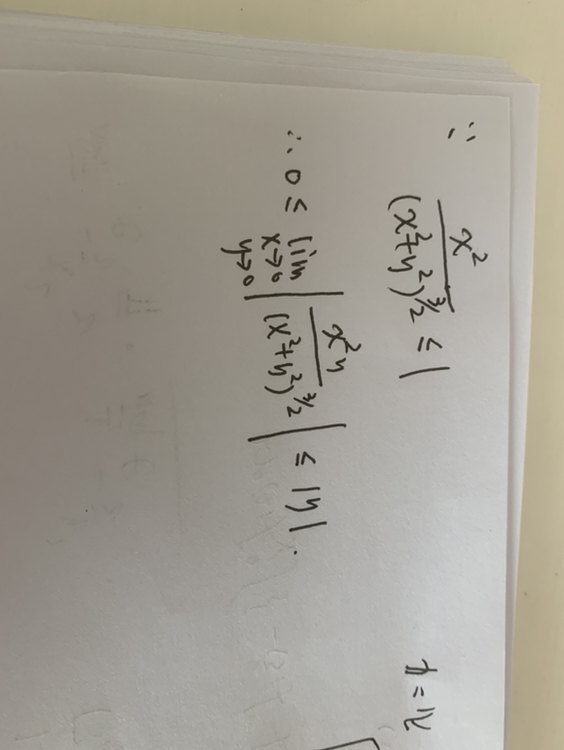 ∵ x²/(x²+y²)^(3/2) ≤ 1
∴ 0 ≤ lim x→0 y→0 |x²y/(x²+y²)^(3/2)| ≤ |y|.